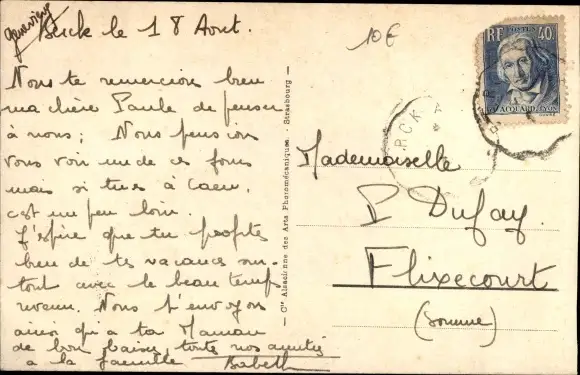 Geneviève
Berck le 18 Aout.
10€
Nous te remercions bien
ma chère Paule de penser
à nous; Nous pensions
vous voir un de ces jours
mais si tu es à Caen,
c'est un peu loin.
J'espère que tu profites
bien de tes vacances sur-
tout avec le beau temps
revenu. Nous t'envoyons
ainsi qu'à ta Maman
de bons baisers, toutes nos amitiés
a la famille Babeth
Cie Alsacienne des Arts Photomécaniques - Strasbourg
RF POSTES 40
JACQUARD LYON
RCK
Mademoiselle
P Dufay.
Flixecourt
(Somme)